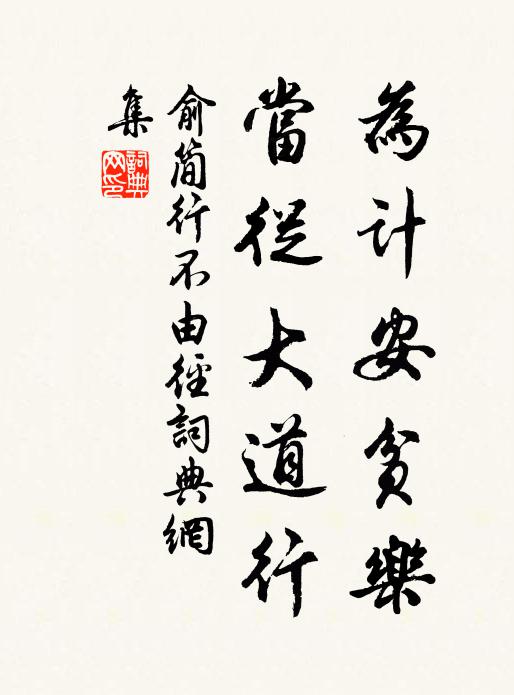 為计安貧樂
當從大道行
俞簡行不由徑詞典網
集
詞典
网印